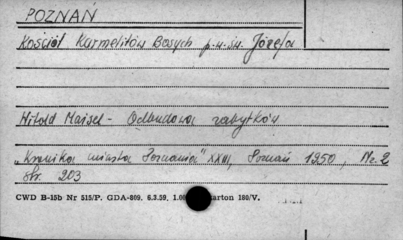 POZNAŃ
Kościół Karmelitów Bosych p.w. św. Józefa
Witold Maisel - Odbudowa zabytków
"Kronika miasta Poznania" XXIII, Poznań 1950, Nr. 2
str. 203
CWD B-15b Nr 515/P. GDA-809. 6.3.59. 1.00 karton 180/V.